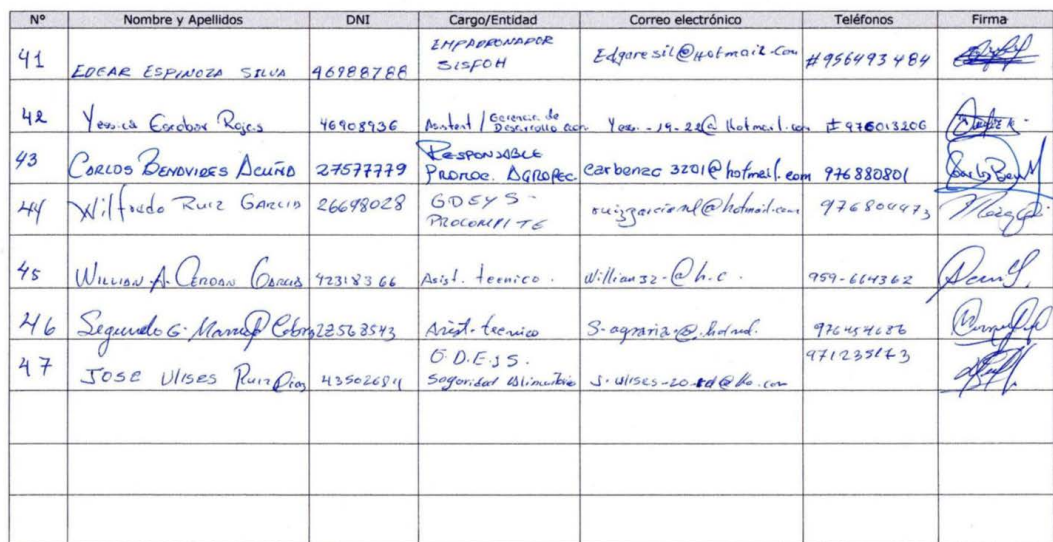 N° Nombre y Apellidos DNI Cargo/Entidad Correo electrónico Teléfonos Firma
41 EDGAR ESPINOZA SILVA 46988788 EMPADRONADOR SISFOH Edgaresil@hotmail.com #956493484
42 Yessica Escobar Rojas 46908936 Asistent / Gerencia de Desarrollo Yess.-19-22@hotmail.com #976013206
43 CARLOS BENAVIDES ACUÑA 27577779 RESPONSABLE PROMOC. AGROPEC. carbenac3201@hotmail.com 976880801
44 Wilfredo RUIZ GARCIA 26698028 GDEYS- PROCOMPITE @hotmail.com 976804473
45 WILLIAN A. CERDAN GARCIA 42318366 Asist. tecnico. Willian32-@h.c. 959-664362
46 Segundo G. 27568543 Asist. tecnico S-agraria-@.hotmail. 976454686
47 JOSE Ulises Ruiz Dias 43502684 G.D.E.I.S. Seguridad Alimentaria J-ulises-20